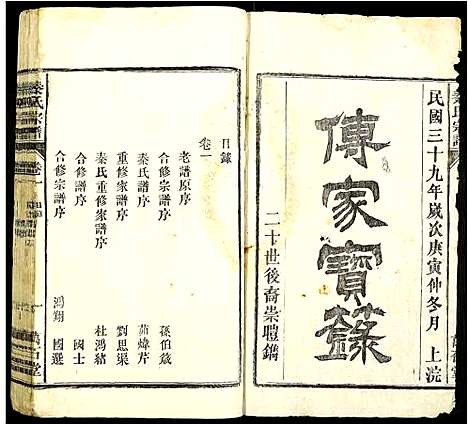 民國三十九年歲次庚寅仲冬月 上浣
傳家寶錄
二十世後裔崇禮鐫
目錄
卷一
老譜原序 孫伯箴
秦氏譜序 茆煒芹
重修家譜序 劉思渠
秦氏重修家譜序 杜鴻緒
合修宗譜序 國士
合修宗譜序 鴻翔 國選
秦氏宗譜
卷一
一
萬石堂